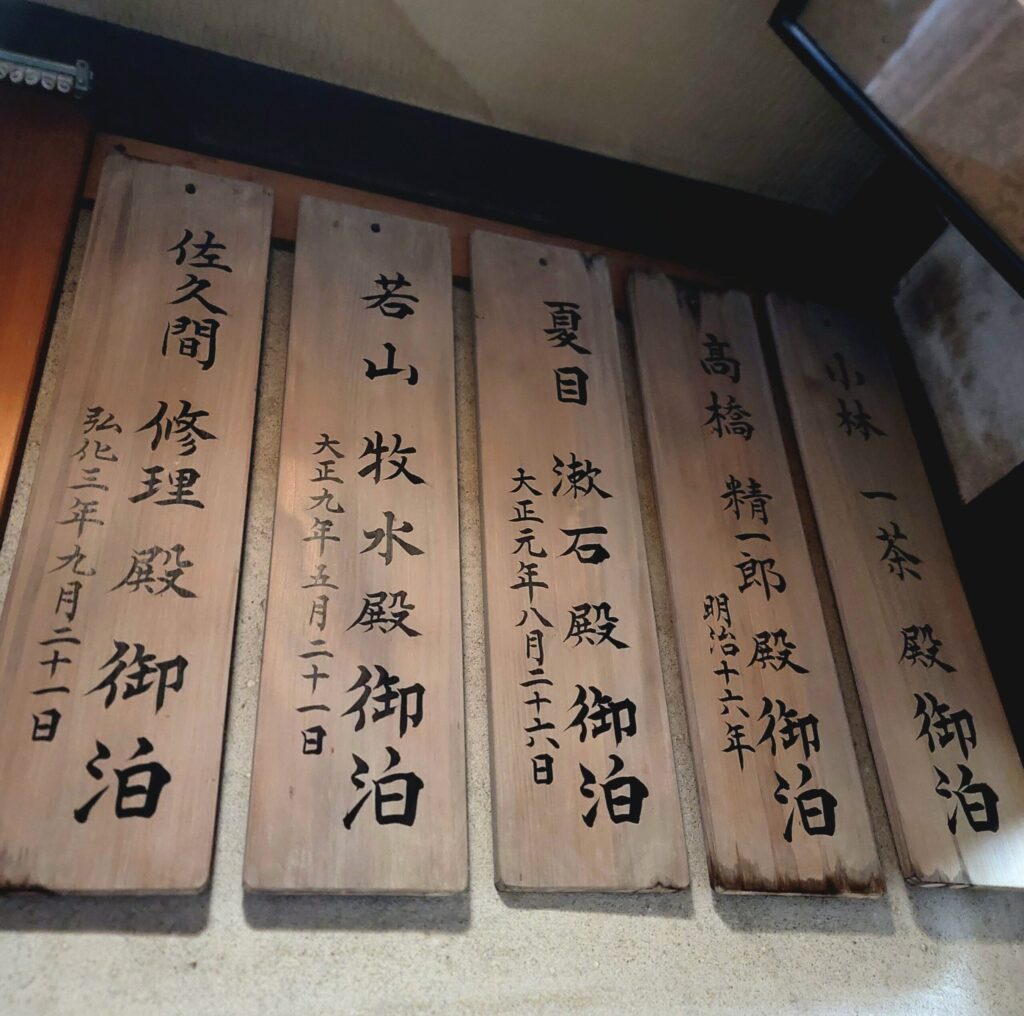 小林 一茶 殿 御泊
高橋 精一郎 殿 御泊
明治十六年
夏目 漱石 殿 御泊
大正元年八月二十六日
若山 牧水 殿 御泊
大正九年五月二十一日
佐久間 修理 殿 御泊
弘化三年九月二十一日